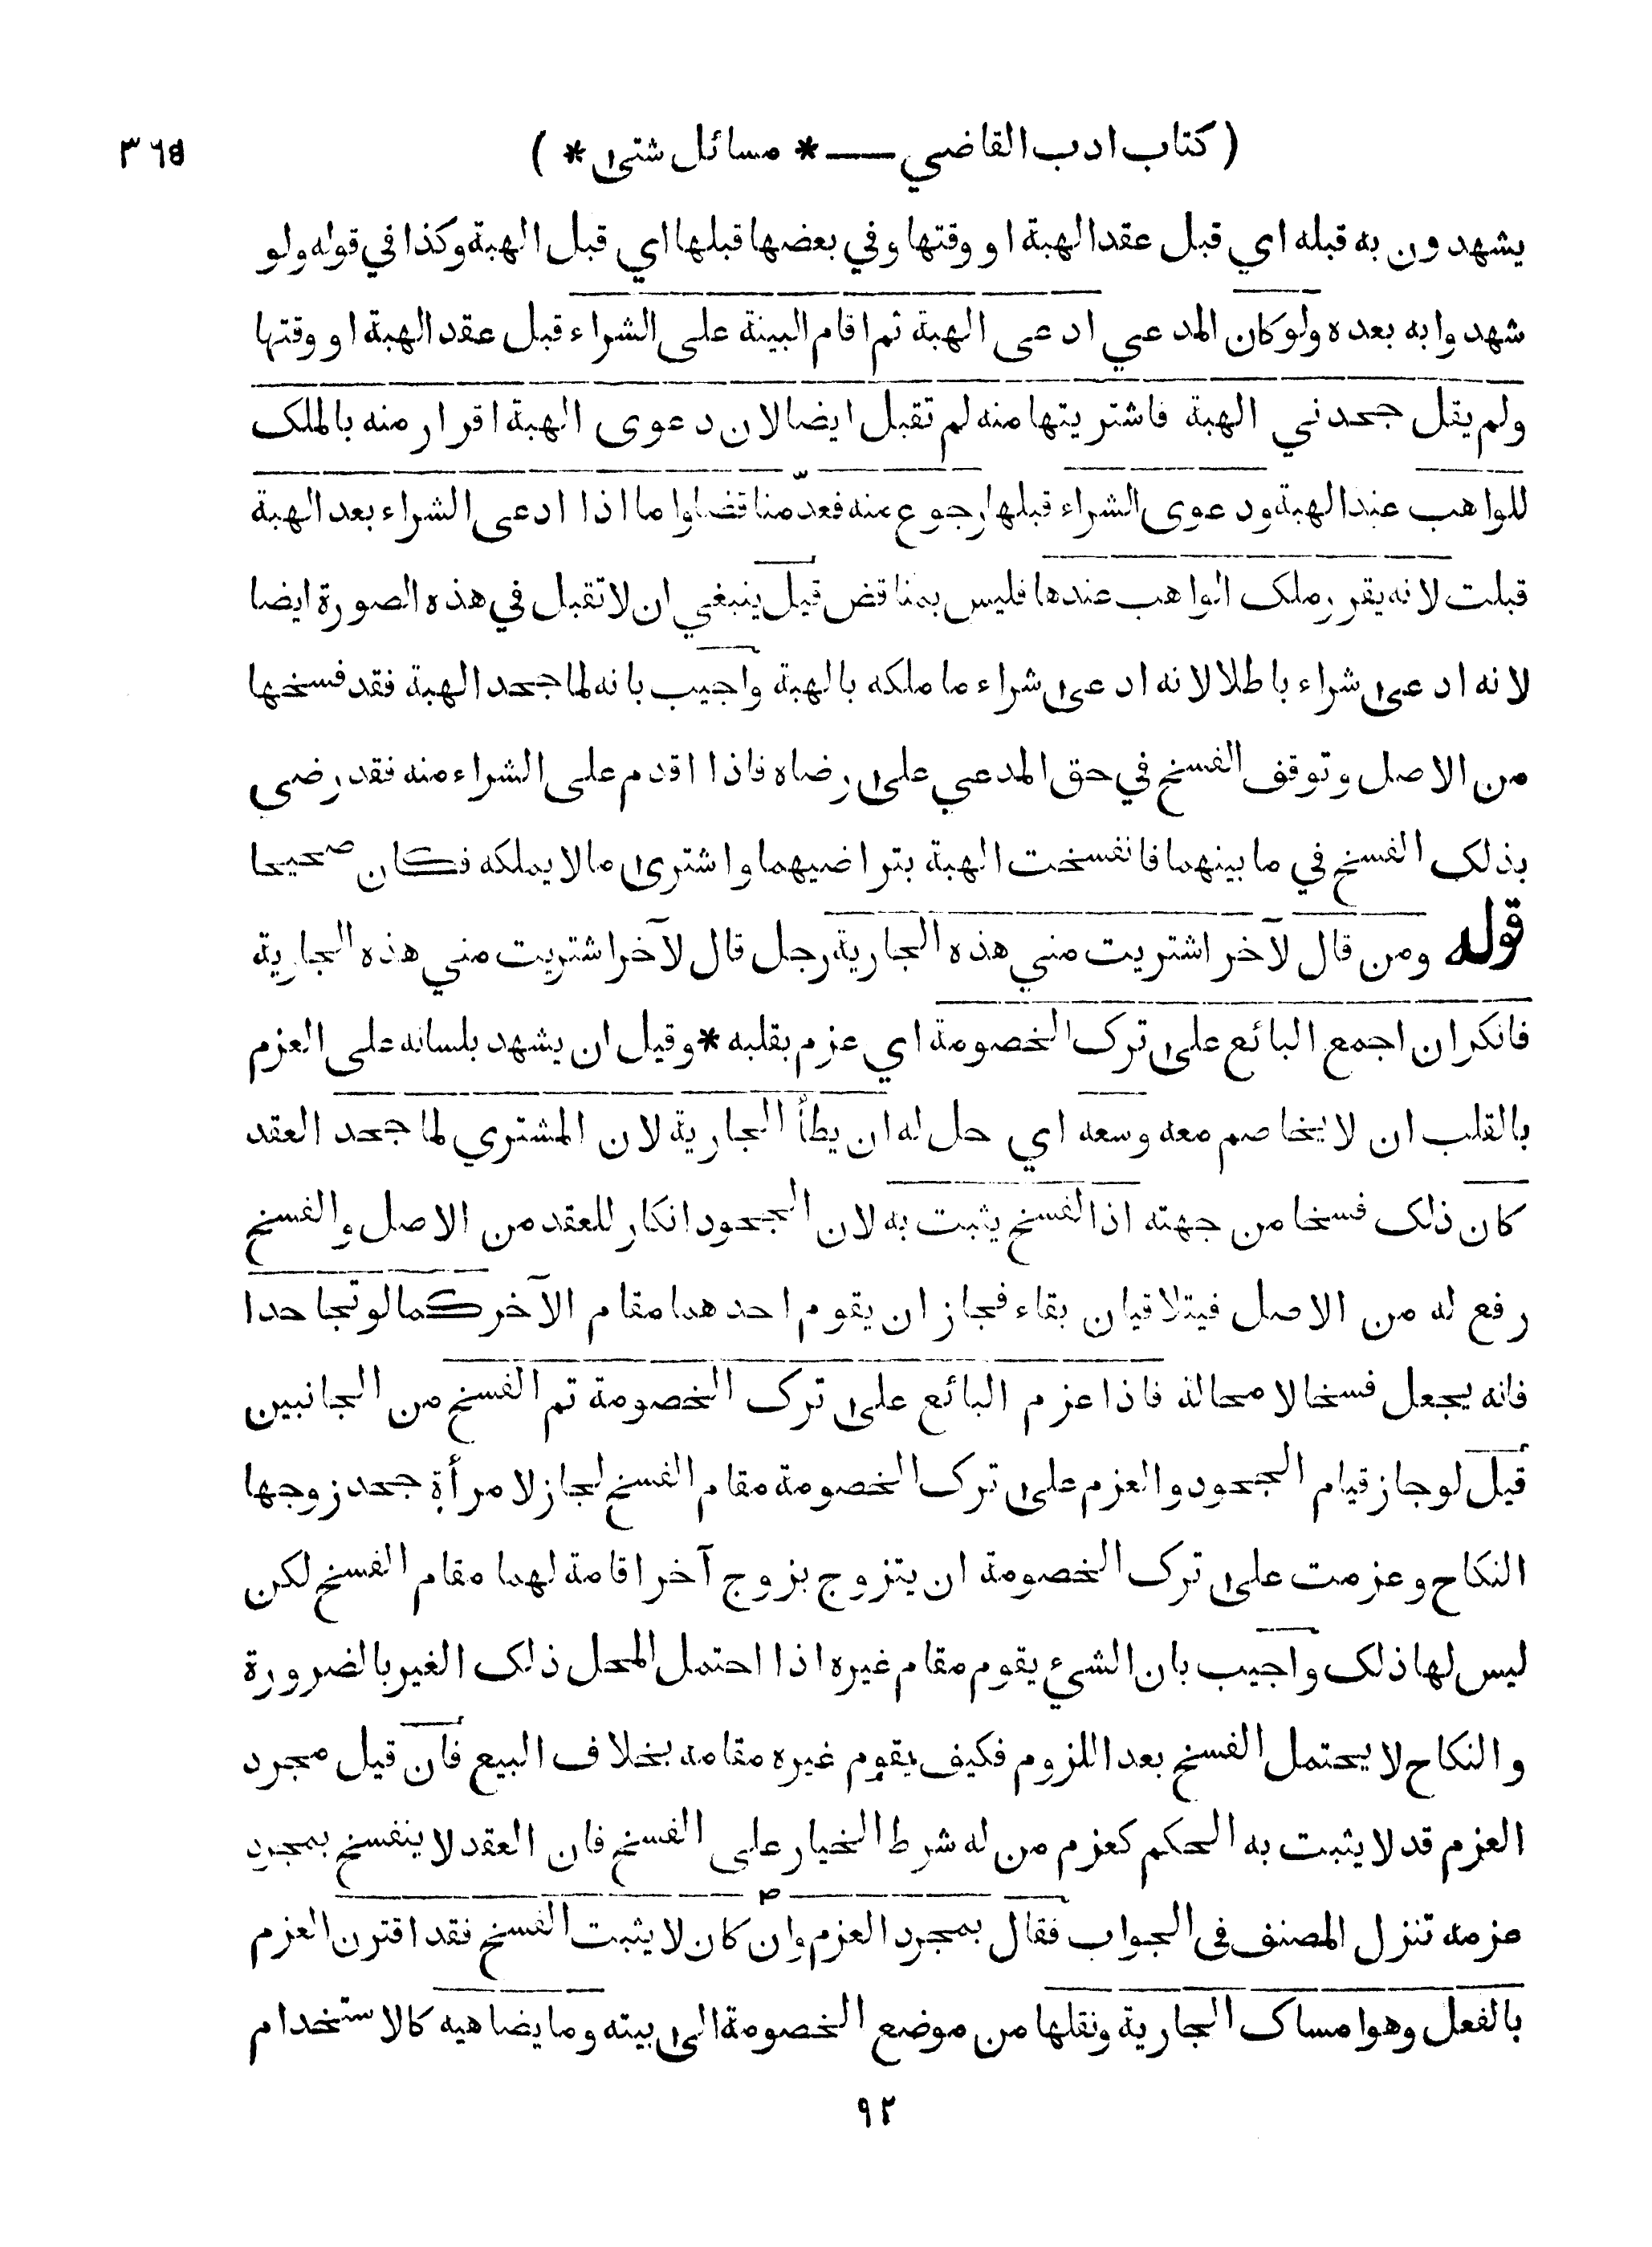 ( كتاب ادب القاضي — * مسائل شتى * ) ٣٦٥
يشهدون به قبله اي قبل عقد الهبة او وقتها وفي بعضها قبلها اي قبل الهبة وكذا في قوله ولو
شهدوا به بعده ولو كان المدعي ادعى الهبة ثم اقام البينة على الشراء قبل عقد الهبة او وقتها
ولم يقل جحدني الهبة فاشتريتها منه لم تقبل ايضا لان دعوى الهبة اقرار منه بالملك
للواهب عند الهبة ودعوى الشراء قبلها رجوع عنه فعدّ مناقضا واما اذا ادعى الشراء بعد الهبة
قبلت لانه يقرر ملك الواهب عندها فليس بمناقض قيل ينبغي ان لا تقبل في هذه الصورة ايضا
لانه ادعى شراء باطلا لانه ادعى شراء ما ملكه بالهبة واجيب بانه لما جحد الهبة فقد فسخها
من الاصل وتوقف الفسخ في حق المدعي على رضاه فاذا اقدم على الشراء منه فقد رضي
بذلك الفسخ في ما بينهما فانفسخت الهبة بتراضيهما واشترى مالا يملكه فكان صحيحا
قوله ومن قال لآخر اشتريت مني هذه الجارية رجل قال لآخر اشتريت مني هذه الجارية
فانكر ان اجمع البائع على ترك الخصومة اي عزم بقلبه * وقيل ان يشهد بلسانه على العزم
بالقلب ان لا يخاصم معه وسعه اي حل له ان يطأ الجارية لان المشتري لما جحد العقد
كان ذلك فسخا من جهته اذ الفسخ يثبت به لان الجحود انكار للعقد من الاصل والفسخ
رفع له من الاصل فيتلاقيان بقاء فجاز ان يقوم احدهما مقام الآخر كما لو تجاحدا
فانه يجعل فسخا لا محالة فاذا عزم البائع على ترك الخصومة تم الفسخ من الجانبين
قيل لو جاز قيام الجحود والعزم على ترك الخصومة مقام الفسخ لجاز لامرأة جحد زوجها
النكاح وعزمت على ترك الخصومة ان يتزوج بزوج آخر اقامة لهما مقام الفسخ لكن
ليس لها ذلك واجيب بان الشيء يقوم مقام غيره اذا احتمل المحل ذلك الغير بالضرورة
والنكاح لا يحتمل الفسخ بعد اللزوم فكيف يقوم غيره مقامه بخلاف البيع فان قيل مجرد
العزم قد لا يثبت به الحكم كعزم من له شرط الخيار على الفسخ فان العقد لا ينفسخ بمجرد
عزمه تنزل المصنف في الجواب فقال بمجرد العزم وان كان لا يثبت الفسخ فقد اقترن العزم
بالفعل وهو امساك الجارية ونقلها من موضع الخصومة الى بيته وما يضاهيه كالاستخدام
٩٢